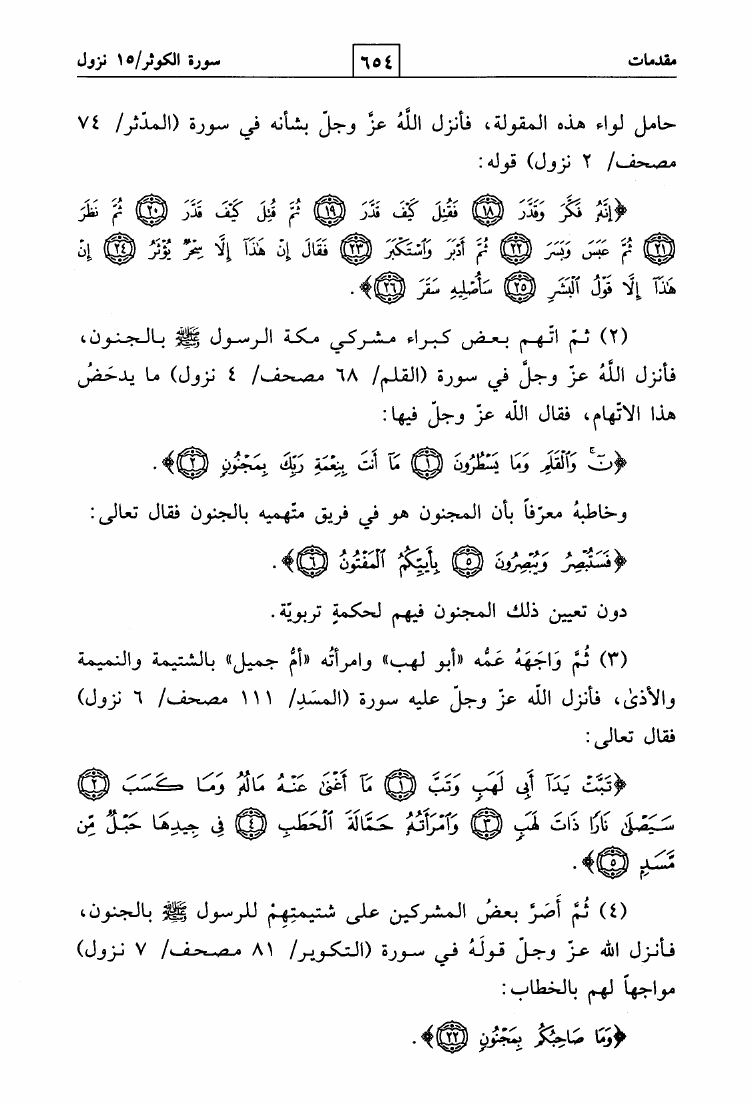 مقدمات ٦٥٤ سورة الكوثر/١٥ نزول
حامل لواء هذه المقولة، فأنزل اللَّهُ عزَّ وجلّ بشأنه في سورة (المدّثر/ ٧٤
مصحف/ ٢ نزول) قوله:
﴿إِنَّهُۥ فَكَّرَ وَقَدَّرَ ﴿١٨﴾ فَقُتِلَ كَيْفَ قَدَّرَ ﴿١٩﴾ ثُمَّ قُتِلَ كَيْفَ قَدَّرَ ﴿٢٠﴾ ثُمَّ نَظَرَ
﴿٢١﴾ ثُمَّ عَبَسَ وَبَسَرَ ﴿٢٢﴾ ثُمَّ أَدْبَرَ وَٱسْتَكْبَرَ ﴿٢٣﴾ فَقَالَ إِنْ هَٰذَآ إِلَّا سِحْرٌ يُؤْثَرُ ﴿٢٤﴾ إِنْ
هَٰذَآ إِلَّا قَوْلُ ٱلْبَشَرِ ﴿٢٥﴾ سَأُصْلِيهِ سَقَرَ ﴿٢٦﴾﴾.
(٢) ثمّ اتّهم بعض كبراء مشركي مكة الرسول ﷺ بالجنون،
فأنزل اللَّهُ عزّ وجلَّ في سورة (القلم/ ٦٨ مصحف/ ٤ نزول) ما يدحَضُ
هذا الاتّهام، فقال اللّه عزّ وجلّ فيها:
﴿نٓۚ وَٱلْقَلَمِ وَمَا يَسْطُرُونَ ﴿١﴾ مَآ أَنتَ بِنِعْمَةِ رَبِّكَ بِمَجْنُونٍ ﴿٢﴾﴾.
وخاطبهُ معرّفاً بأن المجنون هو في فريق متّهميه بالجنون فقال تعالى:
﴿فَسَتُبْصِرُ وَيُبْصِرُونَ ﴿٥﴾ بِأَييِّكُمُ ٱلْمَفْتُونُ ﴿٦﴾﴾.
دون تعيين ذلك المجنون فيهم لحكمةٍ تربويّة.
(٣) ثُمَّ وَاجَهَهُ عَمُّه «أبو لهب» وامرأتُه «أمُّ جميل» بالشتيمة والنميمة
والأذىٰ، فأنزل اللّه عزّ وجلّ عليه سورة (المسَدِ/ ١١١ مصحف/ ٦ نزول)
فقال تعالى:
﴿تَبَّتْ يَدَآ أَبِى لَهَبٍ وَتَبَّ ﴿١﴾ مَآ أَغْنَىٰ عَنْهُ مَالُهُۥ وَمَا كَسَبَ ﴿٢﴾
سَيَصْلَىٰ نَارًا ذَاتَ لَهَبٍ ﴿٣﴾ وَٱمْرَأَتُهُۥ حَمَّالَةَ ٱلْحَطَبِ ﴿٤﴾ فِى جِيدِهَا حَبْلٌ مِّن
مَّسَدٍۭ ﴿٥﴾﴾.
(٤) ثُمَّ أَصَرَّ بعضُ المشركين على شتيمتِهِمْ للرسول ﷺ بالجنون،
فأنزل الله عزّ وجلّ قولَهُ في سورة (التكوير/ ٨١ مصحف/ ٧ نزول)
مواجهاً لهم بالخطاب:
﴿وَمَا صَاحِبُكُم بِمَجْنُونٍ ﴿٢٢﴾﴾.